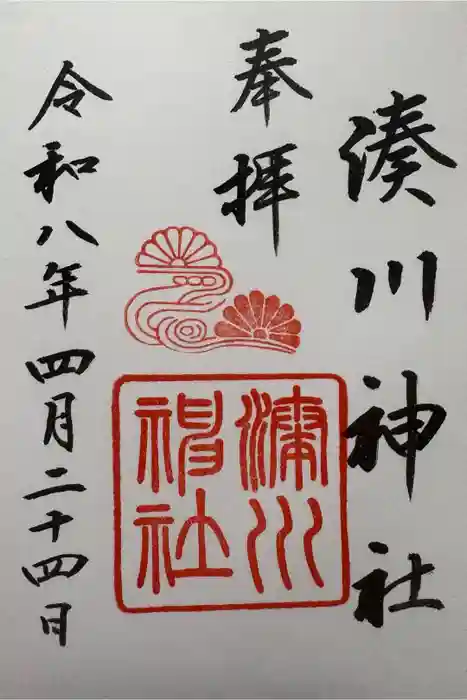 湊川神社
奉拝
湊川
神社
令和八年四月二十四日